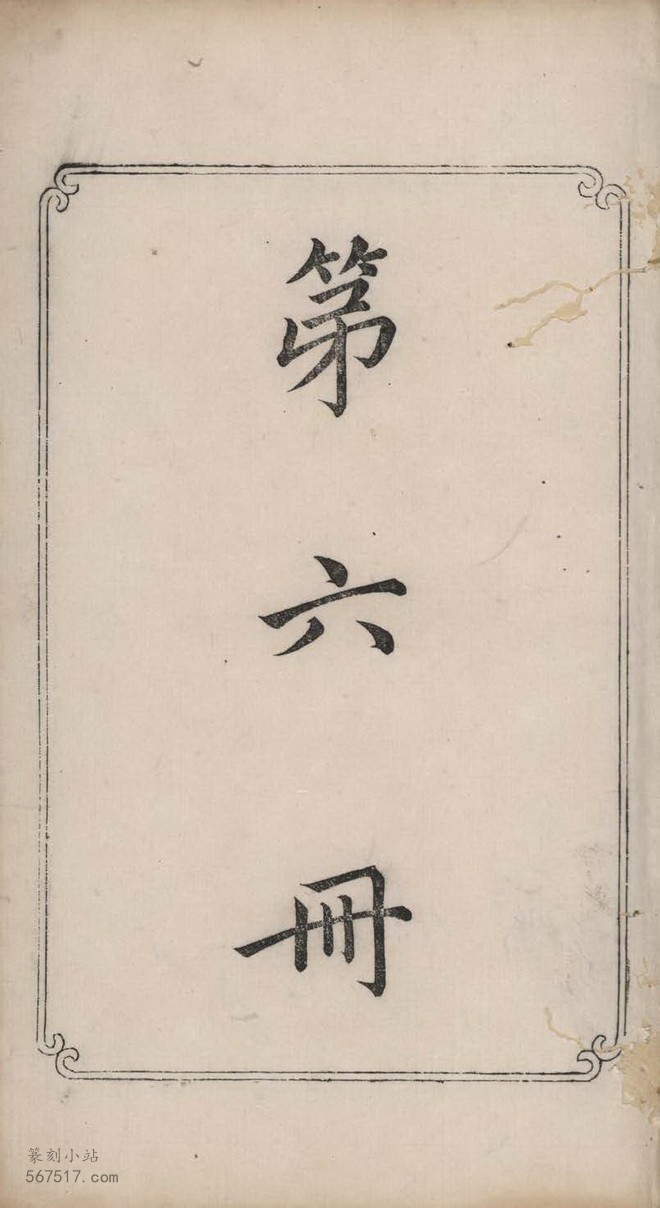 第六冊
篆刻小站
567517.com